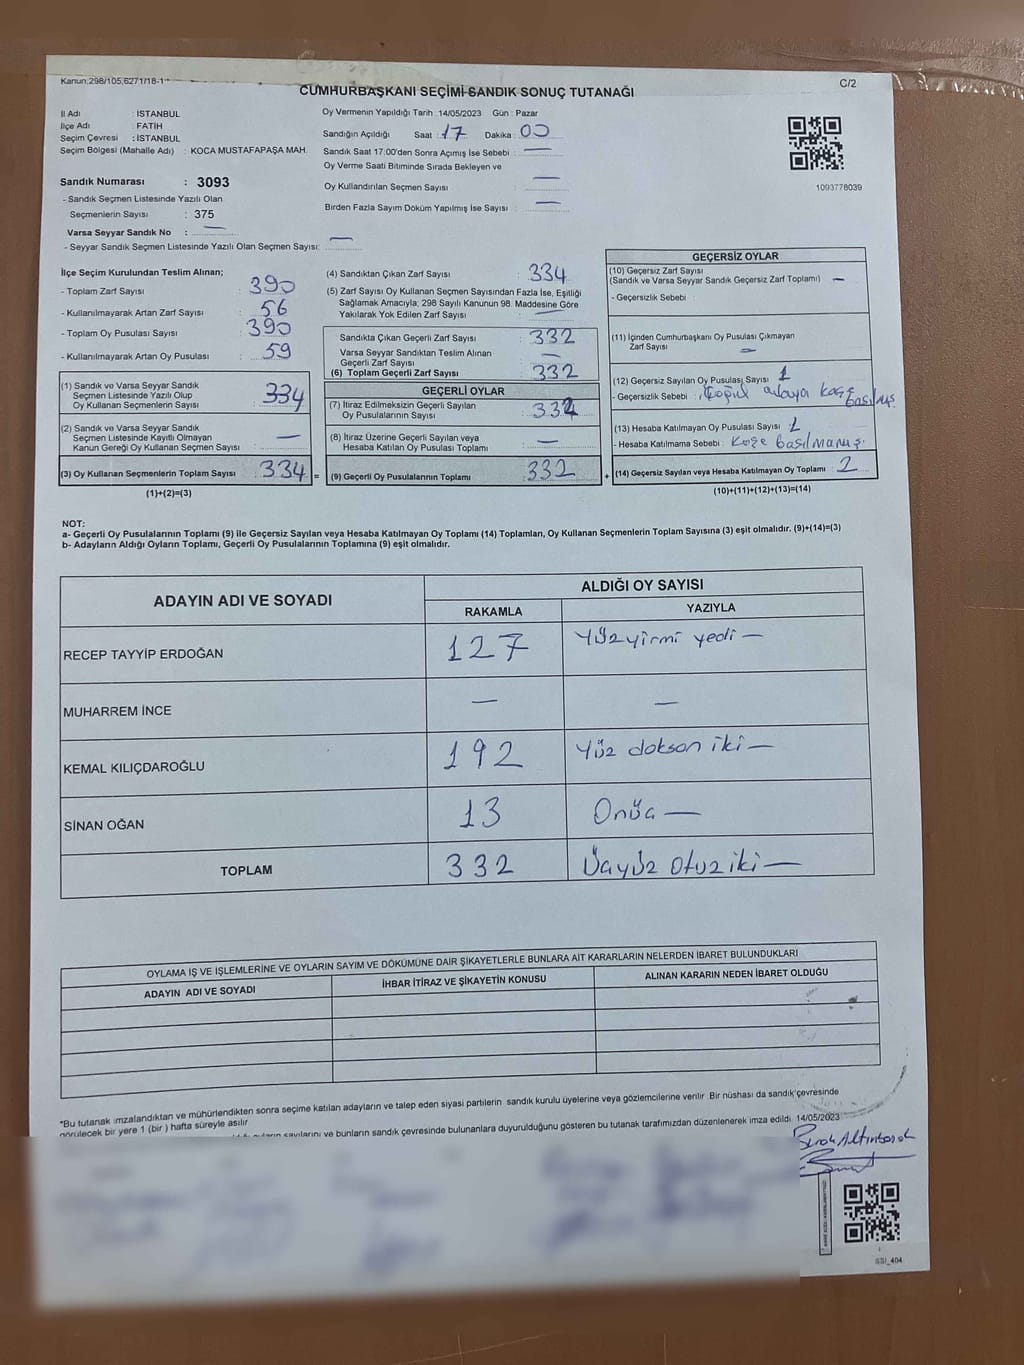 Kanun,298/105,6271/18-1
C/2
CUMHURBAŞKANI SEÇİMİ SANDIK SONUÇ TUTANAĞI
İl Adı : İSTANBUL
İlçe Adı : FATİH
Seçim Çevresi : İSTANBUL
Seçim Bölgesi (Mahalle Adı) : KOCA MUSTAFAPAŞA MAH.
Oy Vermenin Yapıldığı Tarih : 14/05/2023 Gün : Pazar
Sandığın Açıldığı Saat : 17 Dakika : 00
Sandık Saat 17:00'den Sonra Açımış İse Sebebi : —
Oy Verme Saati Bitiminde Sırada Bekleyen ve
Oy Kullandırılan Seçmen Sayısı : —
Birden Fazla Sayım Döküm Yapılmış İse Sayısı : —
1093778039
Sandık Numarası : 3093
- Sandık Seçmen Listesinde Yazılı Olan
Seçmenlerin Sayısı : 375
Varsa Seyyar Sandık No : —
- Seyyar Sandık Seçmen Listesinde Yazılı Olan Seçmen Sayısı: —
İlçe Seçim Kurulundan Teslim Alınan;
- Toplam Zarf Sayısı : 390
- Kullanılmayarak Artan Zarf Sayısı : 56
- Toplam Oy Pusulası Sayısı : 390
- Kullanılmayarak Artan Oy Pusulası : 59
(1) Sandık ve Varsa Seyyar Sandık
Seçmen Listesinde Yazılı Olup
Oy Kullanan Seçmenlerin Sayısı : 334
(2) Sandık ve Varsa Seyyar Sandık
Seçmen Listesinde Kayıtlı Olmayan
Kanun Gereği Oy Kullanan Seçmen Sayısı : —
(3) Oy Kullanan Seçmenlerin Toplam Sayısı : 334 =
(1)+(2)=(3)
(4) Sandıktan Çıkan Zarf Sayısı : 334
(5) Zarf Sayısı Oy Kullanan Seçmen Sayısından Fazla İse, Eşitliği
Sağlamak Amacıyla; 298 Sayılı Kanunun 98. Maddesine Göre
Yakılarak Yok Edilen Zarf Sayısı : —
Sandıkta Çıkan Geçerli Zarf Sayısı : 332
Varsa Seyyar Sandıktan Teslim Alınan
Geçerli Zarf Sayısı : —
(6) Toplam Geçerli Zarf Sayısı : 332
GEÇERLİ OYLAR
(7) İtiraz Edilmeksizin Geçerli Sayılan
Oy Pusulalarının Sayısı : 332
(8) İtiraz Üzerine Geçerli Sayılan veya
Hesaba Katılan Oy Pusulası Toplamı : —
(9) Geçerli Oy Pusulalarının Toplamı : 332 +
GEÇERSİZ OYLAR
(10) Geçersiz Zarf Sayısı
(Sandık ve Varsa Seyyar Sandık Geçersiz Zarf Toplamı) —
- Geçersizlik Sebebi :
(11) İçinden Cumhurbaşkanı Oy Pusulası Çıkmayan
Zarf Sayısı : —
(12) Geçersiz Sayılan Oy Pusulası Sayısı : 1
- Geçersizlik Sebebi : basılmış
(13) Hesaba Katılmayan Oy Pusulası Sayısı : 1
- Hesaba Katılmama Sebebi : Kaşe basılmamış.
(14) Geçersiz Sayılan veya Hesaba Katılmayan Oy Toplamı : 2
(10)+(11)+(12)+(13)=(14)
NOT:
a- Geçerli Oy Pusulalarının Toplamı (9) ile Geçersiz Sayılan veya Hesaba Katılmayan Oy Toplamı (14) Toplamları, Oy Kullanan Seçmenlerin Toplam Sayısına (3) eşit olmalıdır. (9)+(14)=(3)
b- Adayların Aldığı Oyların Toplamı, Geçerli Oy Pusulalarının Toplamına (9) eşit olmalıdır.
ADAYIN ADI VE SOYADI
ALDIĞI OY SAYISI
RAKAMLA YAZIYLA
RECEP TAYYİP ERDOĞAN 127 Yüzyirmi yedi —
MUHARREM İNCE — —
KEMAL KILIÇDAROĞLU 192 Yüz doksan iki —
SİNAN OĞAN 13 Onüç —
TOPLAM 332 Üçyüz otuz iki —
OYLAMA İŞ VE İŞLEMLERİNE VE OYLARIN SAYIM VE DÖKÜMÜNE DAİR ŞİKAYETLERLE BUNLARA AİT KARARLARIN NELERDEN İBARET BULUNDUKLARI
ADAYIN ADI VE SOYADI İHBAR İTİRAZ VE ŞİKAYETİN KONUSU ALINAN KARARIN NEDEN İBARET OLDUĞU
*Bu tutanak imzalandıktan ve mühürlendikten sonra seçime katılan adayların ve talep eden siyasi partilerin sandık kurulu üyelerine veya gözlemcilerine verilir Bir nüshası da sandık çevresinde
görülecek bir yere 1 (bir ) hafta süreyle asılır
sayılarını ve bunların sandık çevresinde bulunanlara duyurulduğunu gösteren bu tutanak tarafımızdan düzenlenerek imza edildi 14/05/2023
SSI_404